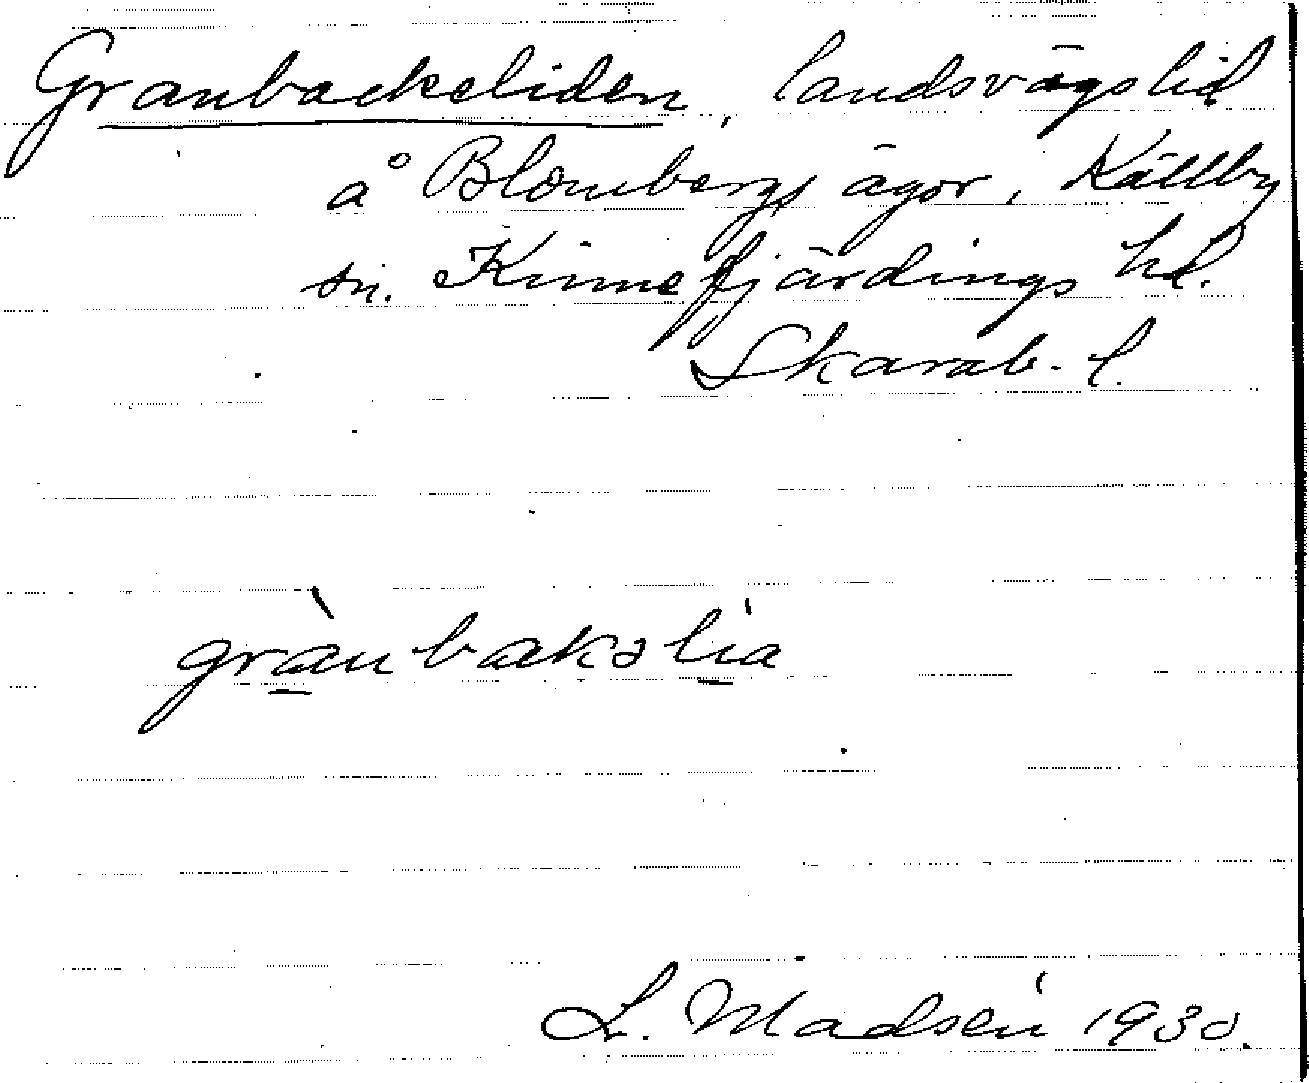 Granbackeliden, landsvägslid
å Blombergs ägor, Källby
sn. Kinnefjärdings hd.
Skarab. l.
grànbakəlía
L. Madsén 1930.